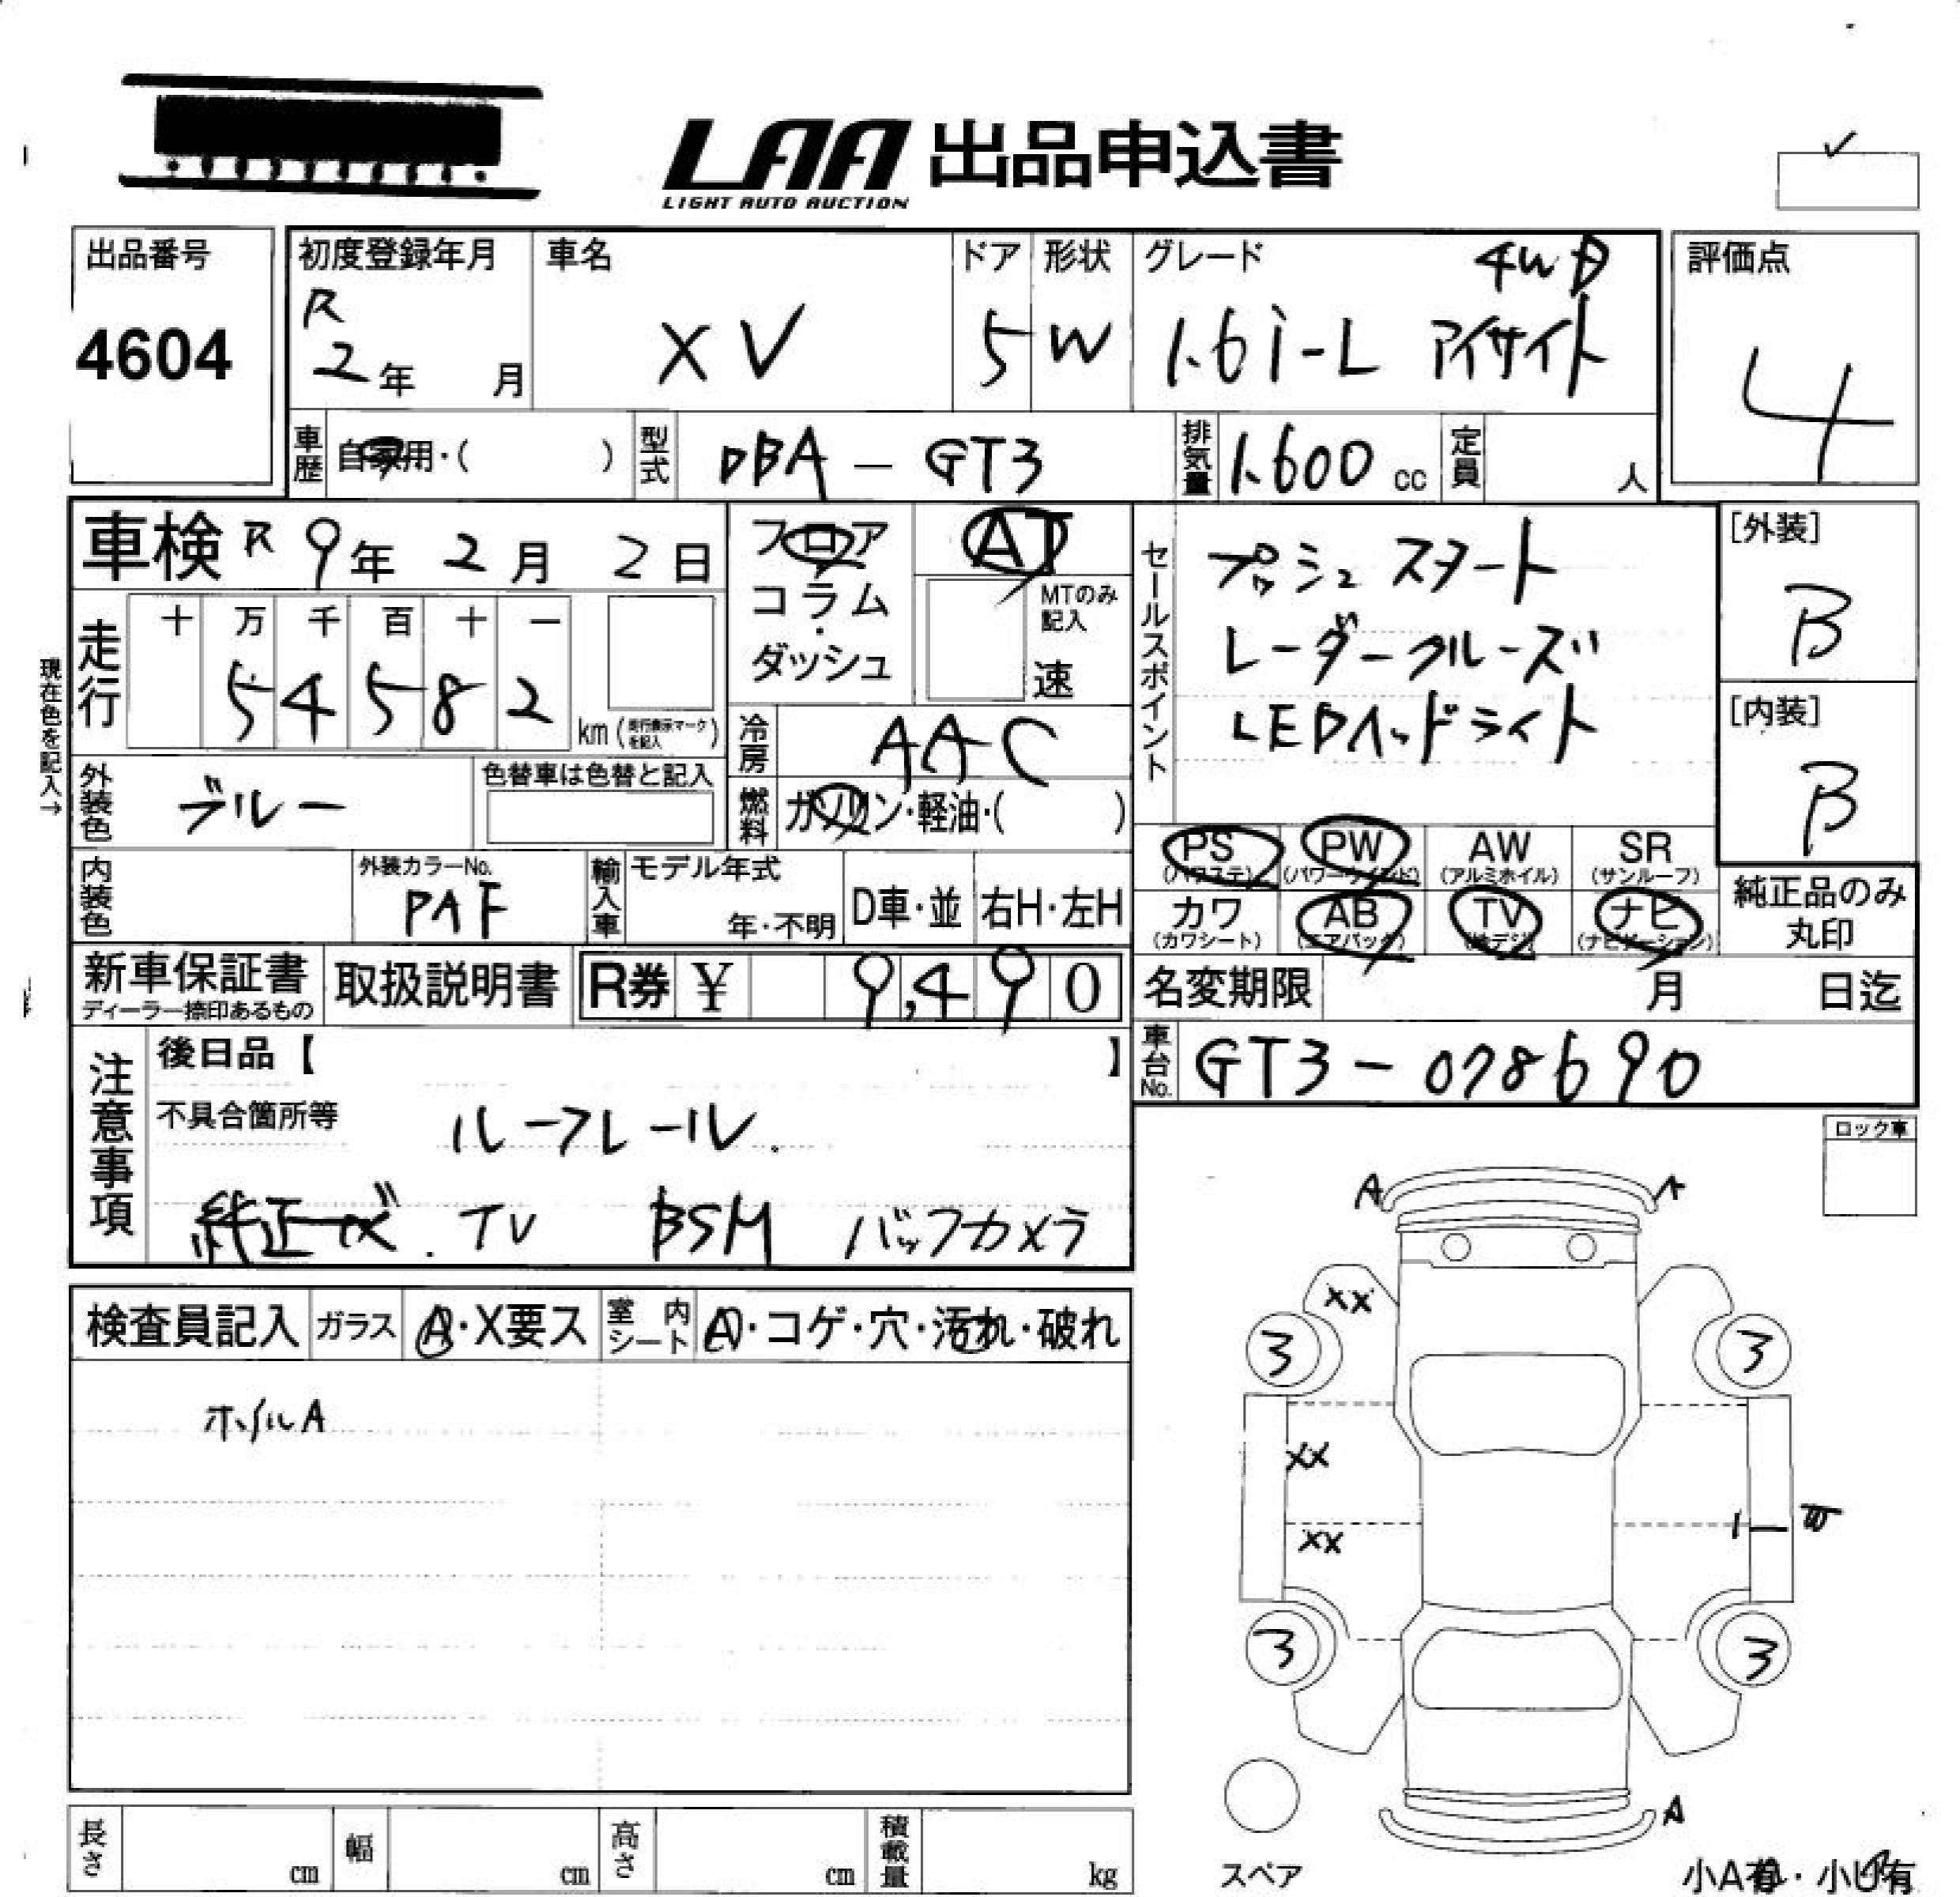 LAA 出品申込書
LIGHT AUTO AUCTION
出品番号
4604
初度登録年月
R
2年 月
車名
XV
ドア
5
形状
W
グレード 4WD
1.6i-L アイサイト
評価点
4
車歴 自家用・( )
型式 DBA-GT3
排気量 1.600 cc
定員 人
車検 R 9年 2月 2日
フロア
コラム
・
ダッシュ
AT
MTのみ
記入
速
セールスポイント
プッシュスタート
レーダークルーズ
LEDヘッドライト
[外装]
B
[内装]
B
現在色を記入→
走行
十 万 千 百 十 一
5 4 5 8 2
km (走行表示マークを記入)
冷房 AAC
燃料 ガソリン・軽油・( )
外装色 ブルー
色替車は色替と記入
内装色
外装カラーNo.
PAF
輸入車
モデル年式
年・不明
D車・並
右H・左H
PS (パワステ)
PW (パワーウインド)
AW (アルミホイル)
SR (サンルーフ)
カワ (カワシート)
AB (エアバック)
TV (地デジ)
ナビ (ナビゲーション)
純正品のみ
丸印
新車保証書
ディーラー捺印あるもの
取扱説明書
R券 ¥ 9,490
名変期限 月 日迄
車台No. GT3-078690
注意事項
後日品【 】
不具合箇所等
ルーフレール.
純正ナビ. TV BSM バックカメラ
ロック車
検査員記入
ガラス A・X要ス
室内シート A・コゲ・穴・汚れ・破れ
ホイルA
A A
XX
3 3
XX
XX
3 3
A
スペア
小A有・小U有
長さ cm
幅 cm
高さ cm
積載量 kg